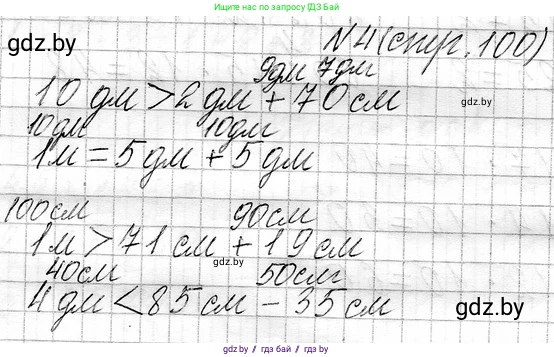 Ищите нас по запросу/gdz.by
gdz.by
N4(стр.100)
9дм 7дм
10 дм > 2 дм + 70 см
gdz.by
10дм 10дм
1м = 5 дм + 5 дм
100см 90см
1м > 71 см + 19 см
gdz.by
40см 50см
4 дм < 85 см - 35 см
gdz.by
gdz.by / вк / тг / gdz.by